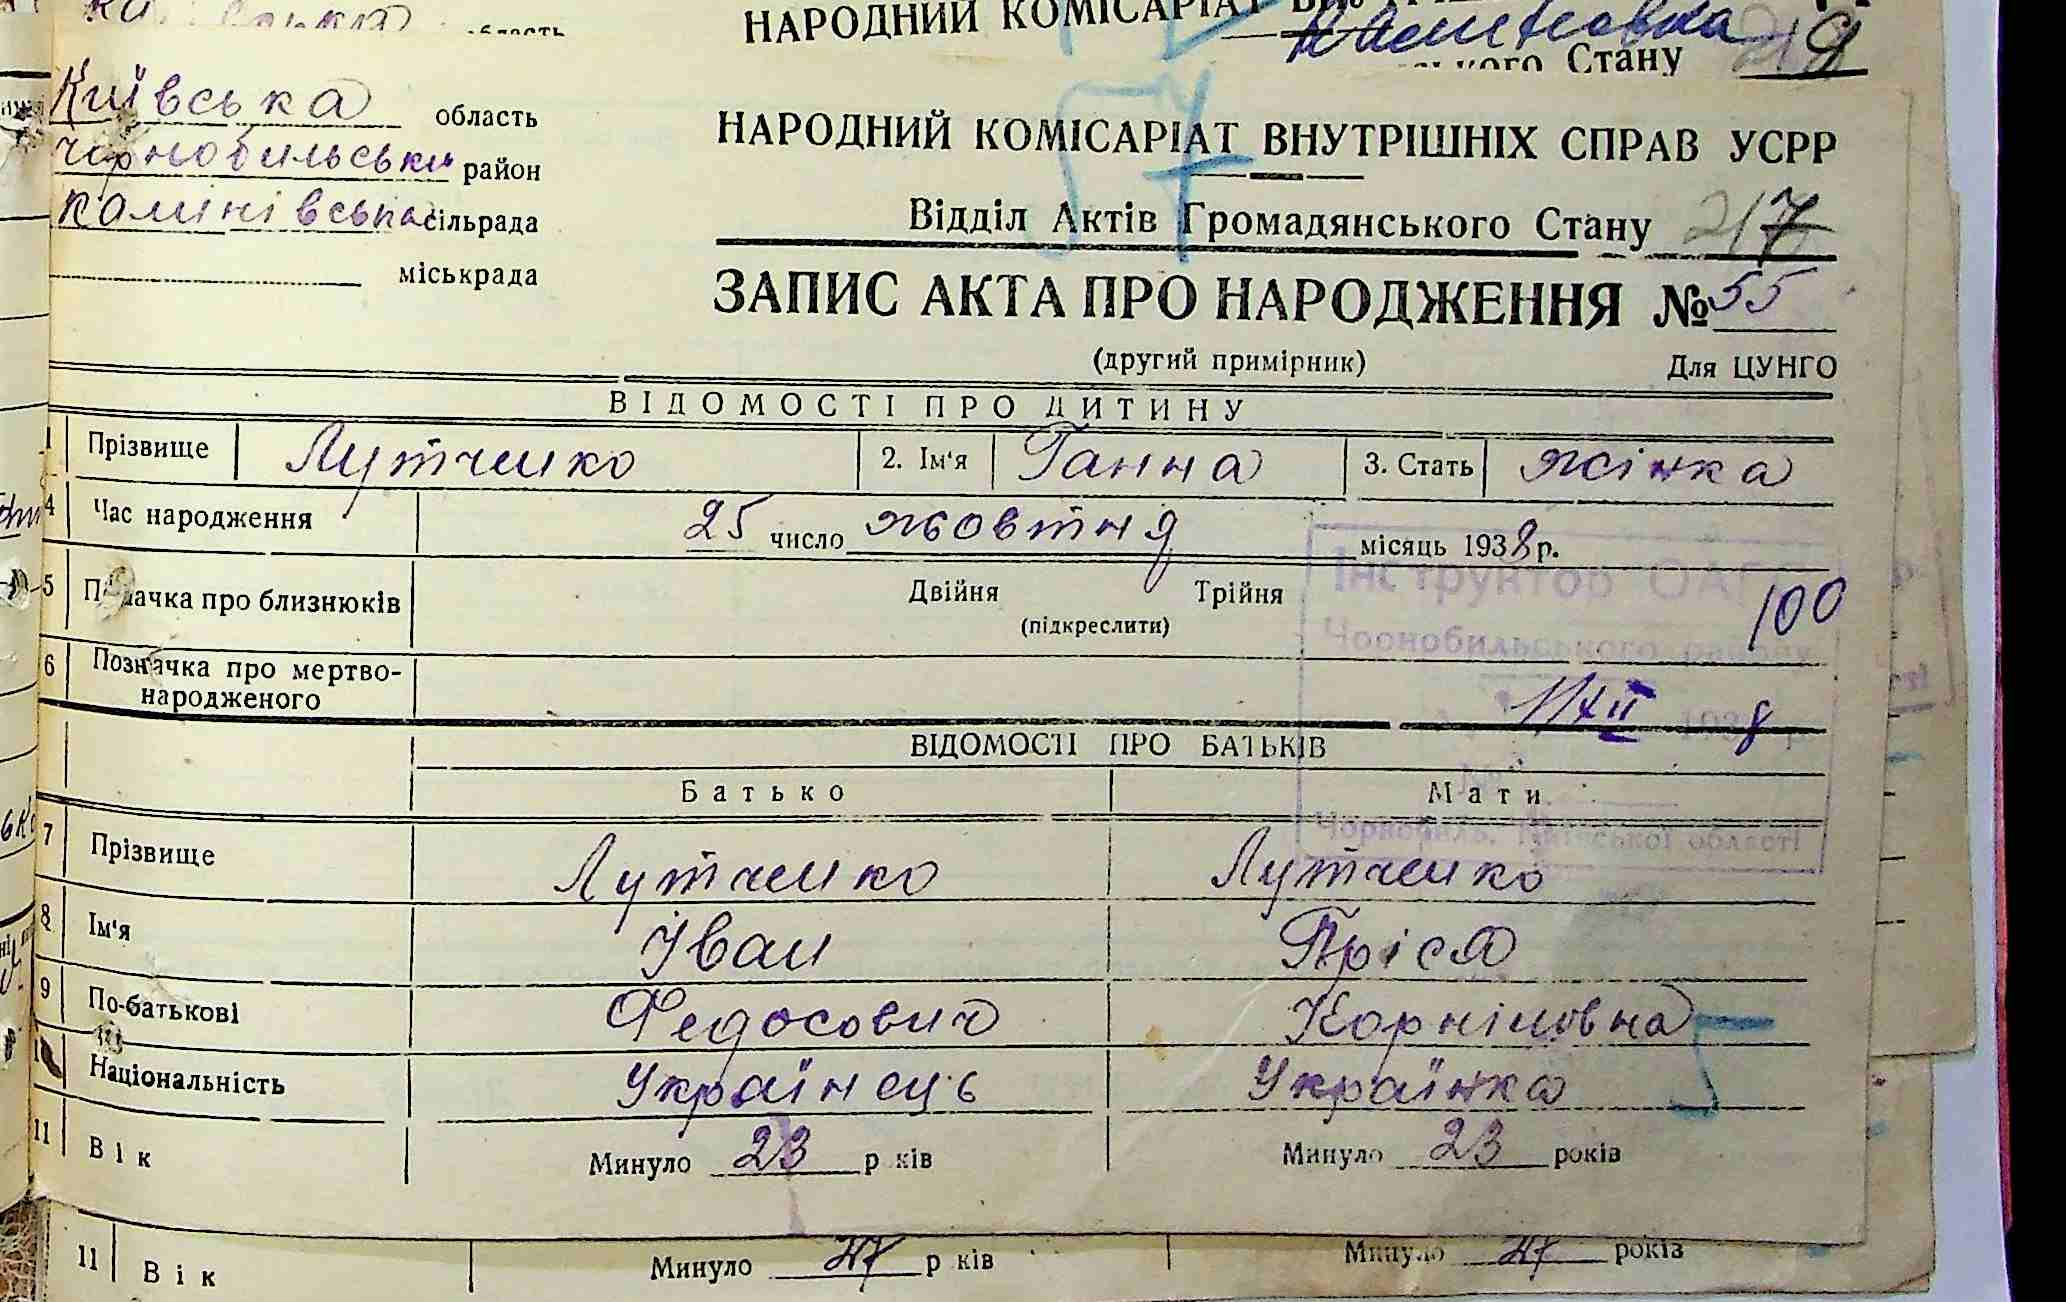 область
НАРОДНИЙ КОМІСАРІАТ
Стану
Київська область
чорнобильськи район
камінівська сільрада
міськрада
НАРОДНИЙ КОМІСАРІАТ ВНУТРІШНІХ СПРАВ УСРР
Відділ Актів Громадянського Стану 217
ЗАПИС АКТА ПРО НАРОДЖЕННЯ № 55
(другий примірник) Для ЦУНГО
ВІДОМОСТІ ПРО ДИТИНУ
1 Прізвище Лутченко 2. Ім'я Ганна 3. Стать жінка
4 Час народження 25 число жовтня місяць 1938 р.
Інструктор ОАГС
5 Позначка про близнюків Двійня Трійня 100
(підкреслити)
Чорнобильського району
6 Позначка про мертво-
народженого
11/XII 1938 р
ВІДОМОСТІ ПРО БАТЬКІВ
Батько Мати
Чорнобиль, Київської області
7 Прізвище Лутченко Лутченко
8 Ім'я Іван Пріся
9 По-батькові Федосович Корніловна
Національність Українець Українка
11 Вік Минуло 23 р ків Минуло 23 років
11 Вік Минуло 27 р ків Минуло 27 років